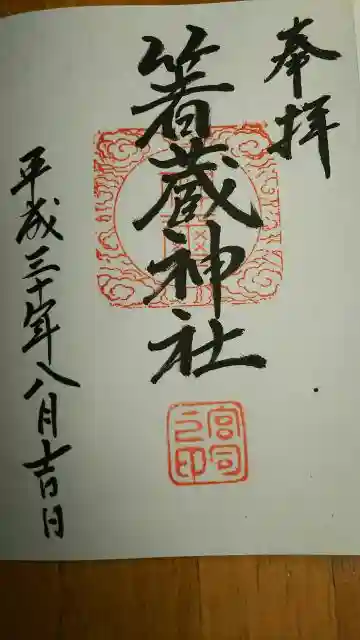 奉拝
箸蔵神社
宮司之印
平成三十年八月吉日